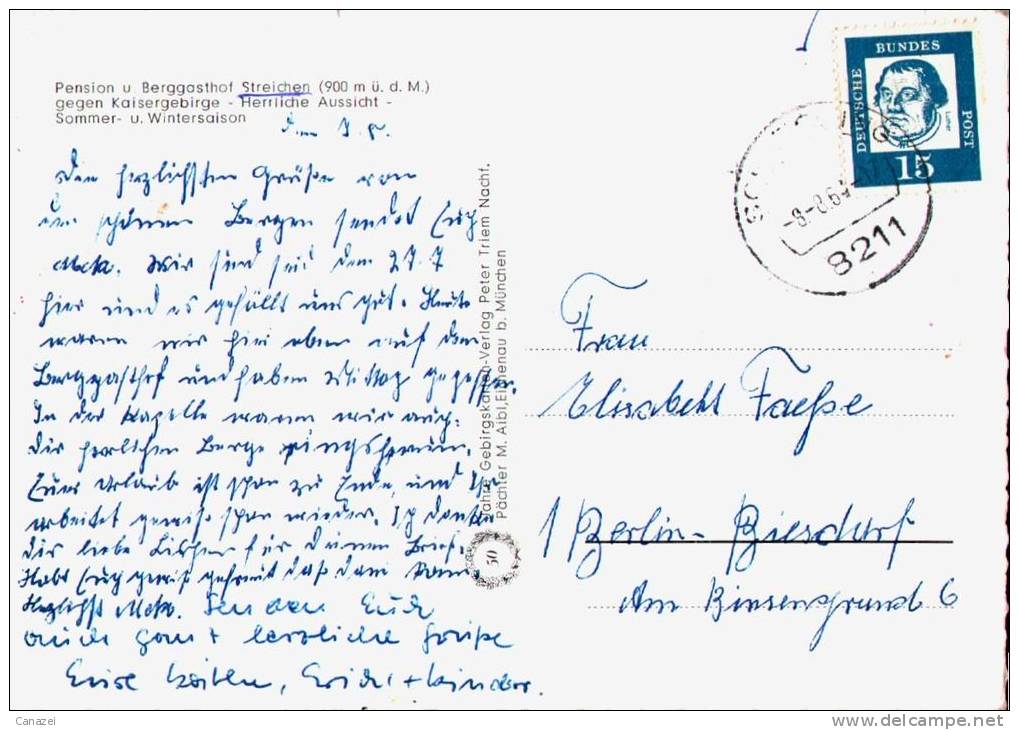 Pension u. Berggasthof Streichen (900 m ü. d. M.)
gegen Kaisergebirge - Herrliche Aussicht -
Sommer- u. Wintersaison
Den herzlichsten Grüße von
den schönen Bergen sendet Euch
Meta. Wir sind seit dem 27.7
hier und es gefällt uns gut. Heute
waren wir hier oben auf dem
Berggasthof und haben Mittag gegessen.
In der Kapelle waren wir auch.
Die herrlichen Berge ringsherum.
Euer Urlaub ist schon zu Ende, und Ihr
arbeitet gewiss schon wieder. Ich danke
Dir liebe Lischen für Deinen Brief.
Habt Euch gewiß gefreut daß
Herzlichst Meta. Senden Euch
auch ganz herzliche Grüße
Eure Erich + Kinder.
50
Jahre Gebirgskarten-Verlag Peter Triem Nacht.
Pächter M. Aibl, Eichenau b. München
DEUTSCHE BUNDES POST
Luther
15
-8-8.6
8211
Frau
Elisabeth Faeße
1 Berlin-Biesdorf
Am Binsengrund 6
Canazei
www.delcampe.net